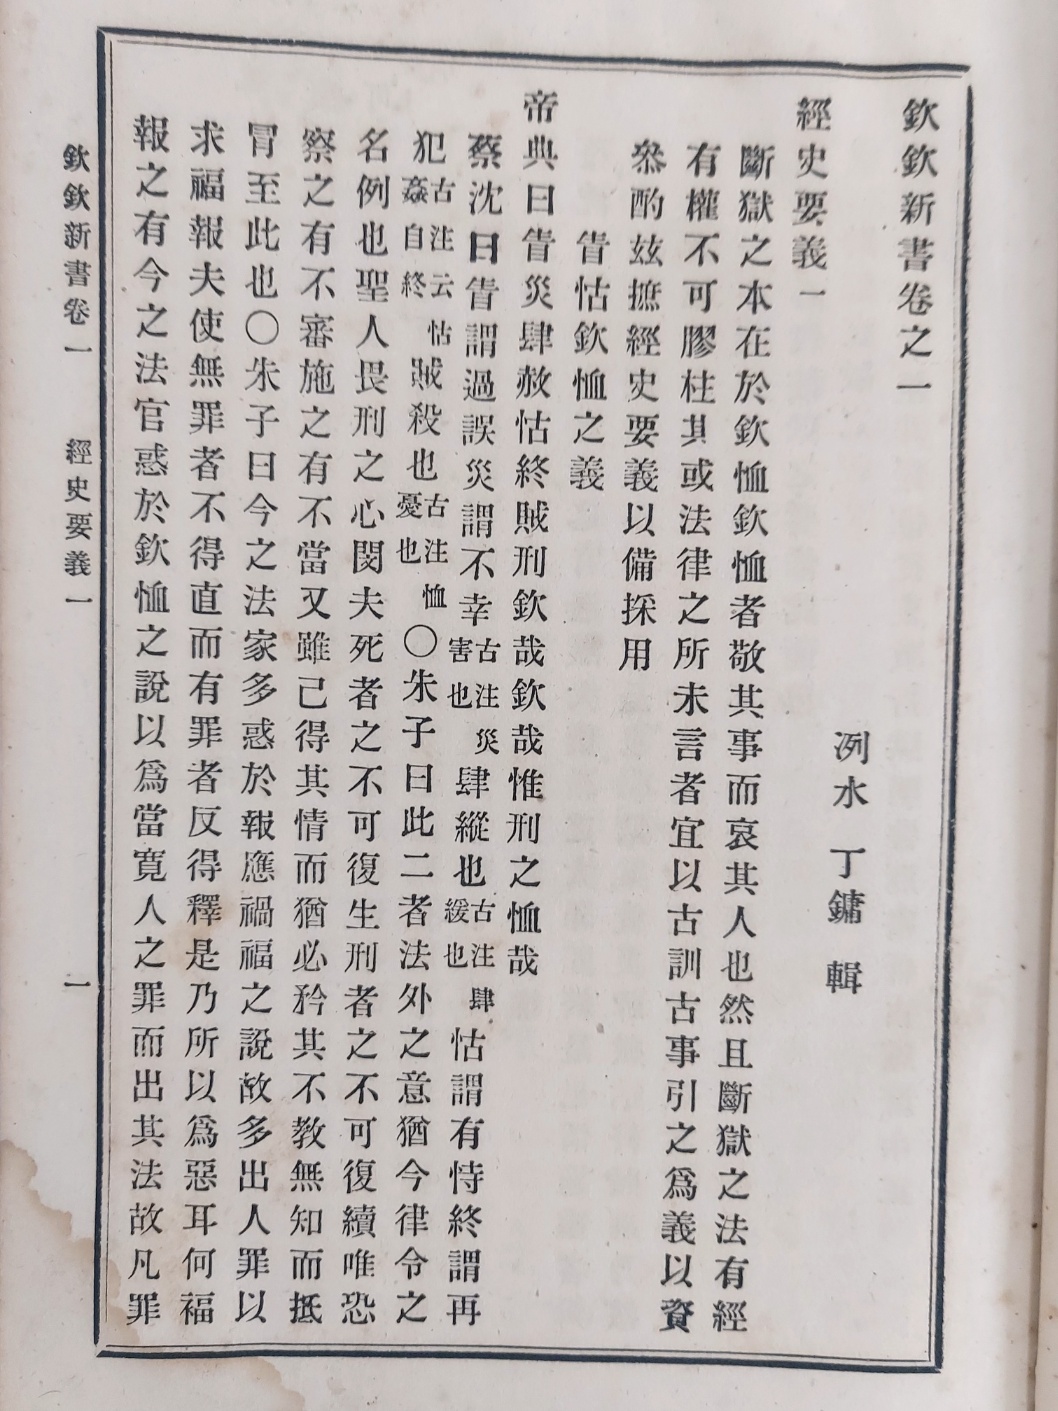 欽欽新書卷之一
洌水 丁鏞 輯
經史要義一
斷獄之本在於欽恤欽恤者敬其事而哀其人也然且斷獄之法有經
有權不可膠柱其或法律之所未言者宜以古訓古事引之爲義以資
叅酌玆摭經史要義以備採用
眚怙欽恤之義
帝典曰眚災肆赦怙終賊刑欽哉欽哉惟刑之恤哉
蔡沈曰眚謂過誤災謂不幸古注災害也肆縱也古注肆緩也怙謂有恃終謂再
犯古注云怙姦自終賊殺也古注恤憂也〇朱子曰此二者法外之意猶今律令之
名例也聖人畏刑之心閔夫死者之不可復生刑者之不可復續唯恐
察之有不審施之有不當又雖已得其情而猶必矜其不教無知而抵
冐至此也〇朱子曰今之法家多惑於報應禍福之說故多出人罪以
求福報夫使無罪者不得直而有罪者反得釋是乃所以爲惡耳何福
報之有今之法官惑於欽恤之說以爲當寬人之罪而出其法故凡罪
欽欽新書卷一 經史要義一 一